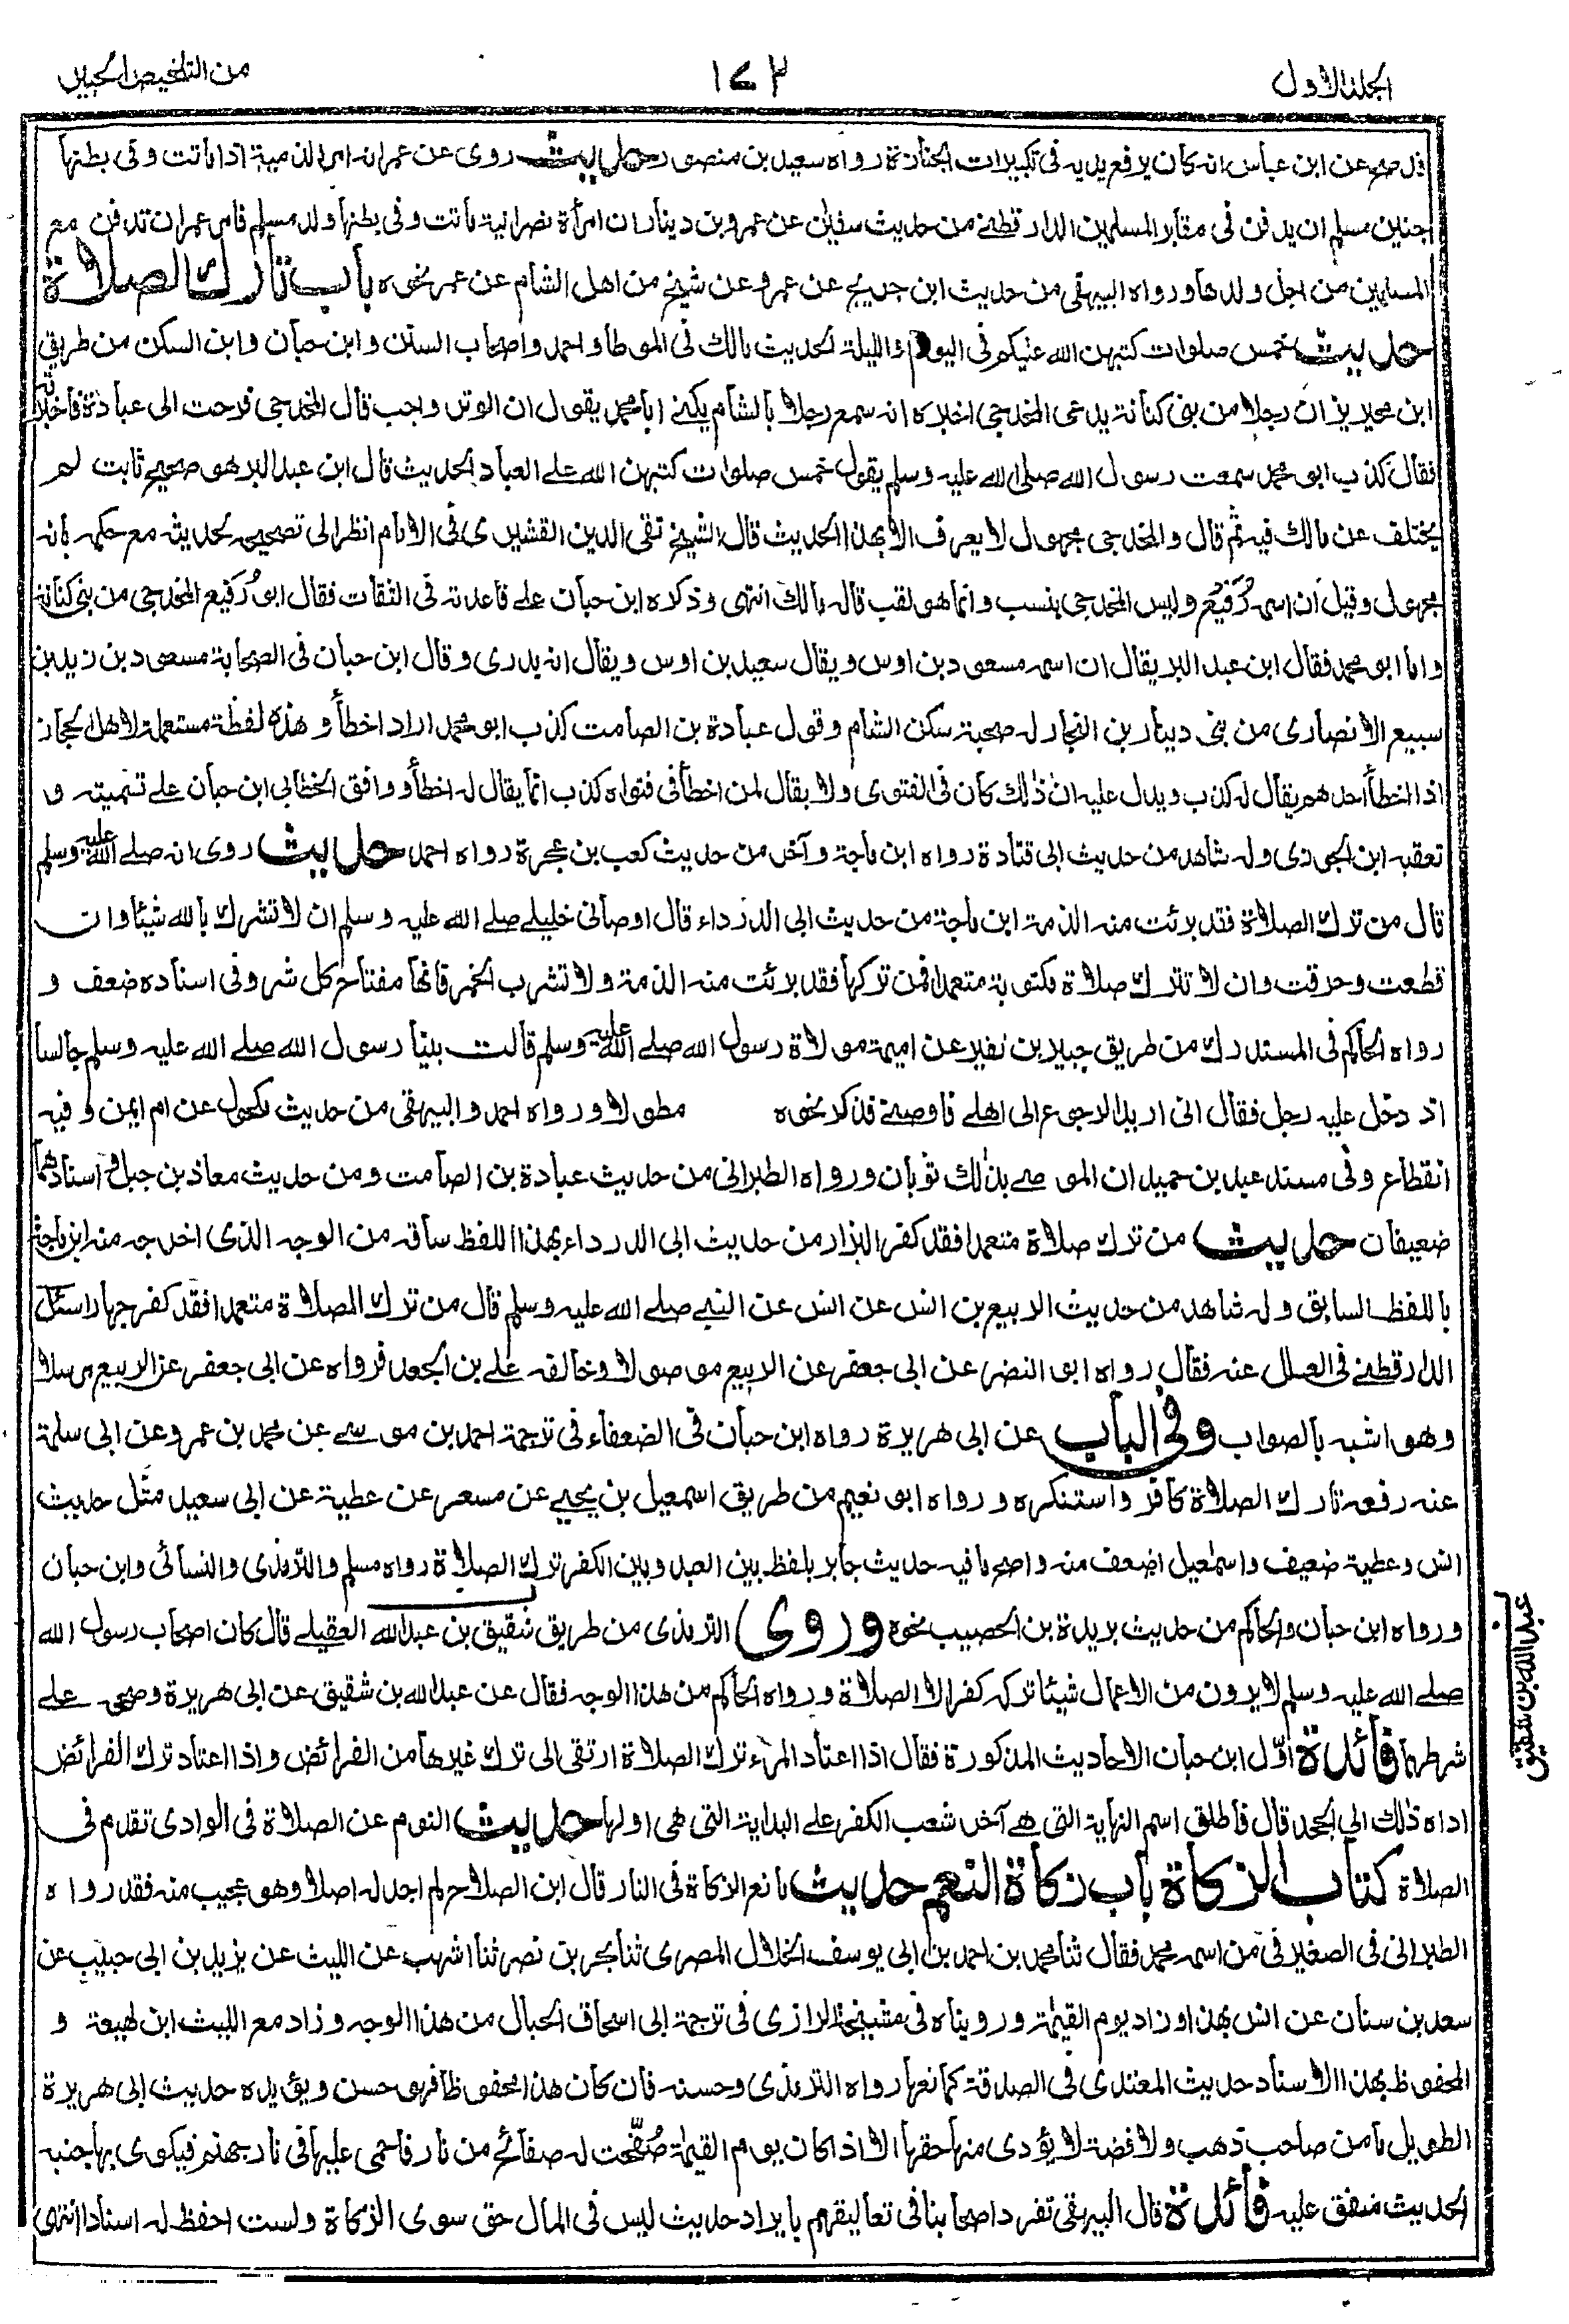 المجلد الاول
١٧٣
من التلخيص الحبير
قد صح عن ابن عباس انه كان يرفع يديه فى تكبيرات الجنازة رواه سعيد بن منصور حديث روى عن عمر انه امر الذمية اذا ماتت وفى بطنها
جنين مسلم ان يدفن فى مقابر المسلمين الدارقطنے من حديث سفيان عن عمرو بن دينار ان امرأة نصرانية ماتت وفى بطنها ولد مسلم فامر عمر ان تدفن مع
المسلمين من اجل ولدها ورواه البيهقى من حديث ابن جريج عن عمرو عن شيخ من اهل الشام عن عمر نحوه باب تارك الصلاة
حديث خمس صلوات كتبهن الله عليكم فى اليوم والليلة الحديث مالك فى الموطا واحمد واصحاب السنن وابن حبان وابن السكن من طريق
ابن محيريز ان رجلا من بنى كنانة يدعى المخدجى اخبره انه سمع رجلا بالشام يكنے ابا محمد يقول ان الوتر واجب قال المخدجى فرحت الى عبادة فاخبرته
فقال كذب ابو محمد سمعت رسول الله صلى الله عليه وسلم يقول خمس صلوات كتبهن الله علے العباد الحديث قال ابن عبد البر هو صحيح ثابت لم
يختلف عن مالك فيه ثم قال والمخدجى مجهول لا يعرف الا بهذا الحديث قال الشيخ تقى الدين القشيرى فى الامام انظر الى تصحيحه لحديثه مع حكمه بانه
مجهول وقيل ان اسمه رُفَيْع وليس المخدجى بنسب وانما هو لقب قاله مالك انتهى وذكره ابن حبان علے قاعدته فى الثقات فقال ابو رُفيع المخدجى من بنى كنانة
واما ابو محمد فقال ابن عبد البر يقال ان اسمه مسعود بن اوس ويقال سعيد بن اوس ويقال انه بدرى وقال ابن حبان فى الصحابة مسعود بن زيد بن
سبيع الانصارى من بنى دينار بن النجار له صحبة سكن الشام وقول عبادة بن الصامت كذب ابو محمد اراد اخطأ وهذه لفظة مستعملة لاهل الحجاز
اذا اخطأ احدهم يقال له كذب ويدل عليه ان ذٰلك كان فى الفتوى ولا يقال لمن اخطأ فى فتواه كذب انما يقال له اخطأ ووافق الخطابى ابن حبان علے تسميته و
تعقبه ابن الجوزى وله شاهد من حديث ابى قتادة رواه ابن ماجة وآخر من حديث كعب بن عجرة رواه احمد حديث روى انه صلے الله عليه وسلم
قال من ترك الصلاة فقد برئت منه الذمة ابن ماجة من حديث ابى الدرداء قال اوصانى خليلے صلے الله عليه وسلم ان لا تشرك بالله شيئا وان
قطعت وحرقت وان لا تترك صلاة مكتوبة متعمدا فمن تركها فقد برئت منه الذمة ولا تشرب الخمر فانها مفتاح كل شر وفى اسناده ضعف و
رواه الحاكم فى المستدرك من طريق جبير بن نفير عن اميمة مولاة رسول الله صلے الله عليه وسلم قالت بينا رسول الله صلے الله عليه وسلم جالسا
اذ دخل عليه رجل فقال انى اريد الرجوع الى اهلے فاوصنے فذكر نحوه مطولا ورواه احمد والبيهقى من حديث مكحول عن ام ايمن وفيه
انقطاع وفى مسند عبد بن حميد ان الموصے بذٰلك ثوبان ورواه الطبرانى من حديث عبادة بن الصامت ومن حديث معاذ بن جبل و اسنادهما
ضعيفان حديث من ترك صلاة متعمدا فقد كفر البزار من حديث ابى الدرداء بهذا اللفظ ساقه من الوجه الذى اخرجه منه ابن ماجة
باللفظ السابق وله شاهد من حديث الربيع بن انس عن انس عن النبے صلے الله عليه وسلم قال من ترك الصلاة متعمدا فقد كفر جهارا سئل
الدارقطنے فى العلل عنه فقال رواه ابو النضر عن ابى جعفر عن الربيع موصولا وخالفه علے بن الجعد فرواه عن ابى جعفر عن الربيع مرسلا
وهو اشبه بالصواب وفى الباب عن ابى هريرة رواه ابن حبان فى الضعفاء فى ترجمة احمد بن موسے عن محمد بن عمرو عن ابى سلمة
عنه رفعه تارك الصلاة كافر واستنكره ورواه ابو نعيم من طريق اسمعيل بن يحيے عن مسعر عن عطية عن ابى سعيد مثل حديث
انس وعطية ضعيف واسمٰعيل اضعف منه واصح ما فيه حديث جابر بلفظ بين العبد وبين الكفر ترك الصلاة رواه مسلم والترمذى والنسائى وابن حبان
ورواه ابن حبان والحاكم من حديث بريدة بن الحصيب نحوه (وروى) الترمذى من طريق شقيق بن عبد الله العقيلے قال كان اصحاب رسول الله
عبد الله بن شقيق
صلے الله عليه وسلم لا يرون من الاعمال شيئا تركه كفر الا الصلاة ورواه الحاكم من هذا الوجه فقال عن عبد الله بن شقيق عن ابى هريرة وصحح علے
شرطهما فائدة اوّل ابن حبان الاحاديث المذكورة فقال اذا اعتاد المرء ترك الصلاة ارتقى الى ترك غيرها من الفرائض واذا اعتاد ترك الفرائض
اداه ذٰلك الى الجحد قال فاطلق اسم النهاية التى هے آخر شعب الكفر علے البداية التى هى اولها حديث النوم عن الصلاة فى الوادى تقدم فى
الصلاة كتاب الزكاة باب زكاة النعم حديث مانع الزكاة فى النار قال ابن الصلاح لم اجد له اصلا وهو عجيب منه فقد رواه
الطبرانى فى الصغير فى من اسمه محمد فقال ثنا محمد بن احمد بن ابى يوسف الخلال المصرى ثنا بحر بن نصر ثنا اشهب عن الليث عن يزيد بن ابى حبيب عن
سعد بن سنان عن انس بهذا وزاد يوم القيٰمة ورويناه فى مشيخة الرازى فى ترجمة ابى اسحاق الحبال من هذا الوجه وزاد مع الليث ابن لهيعة و
المحفوظ بهذا الاسناد حديث المعتدى فى الصدقة كمانعها رواه الترمذى وحسنه فان كان هذا محفوظا فهو حسن ويؤيده حديث ابى هريرة
الطويل ما من صاحب ذهب ولا فضة لا يؤدى منها حقها الا اذا كان يوم القيٰمة صُفّحت له صفائح من نار فاحمى عليها فى نار جهنم فيكوى بها جنبه
الحديث متفق عليه فائدة قال البيهقى تفرد اصحابنا فى تعاليقهم بايراد حديث ليس فى المال حق سوى الزكاة ولست احفظ له اسنادا انتهى